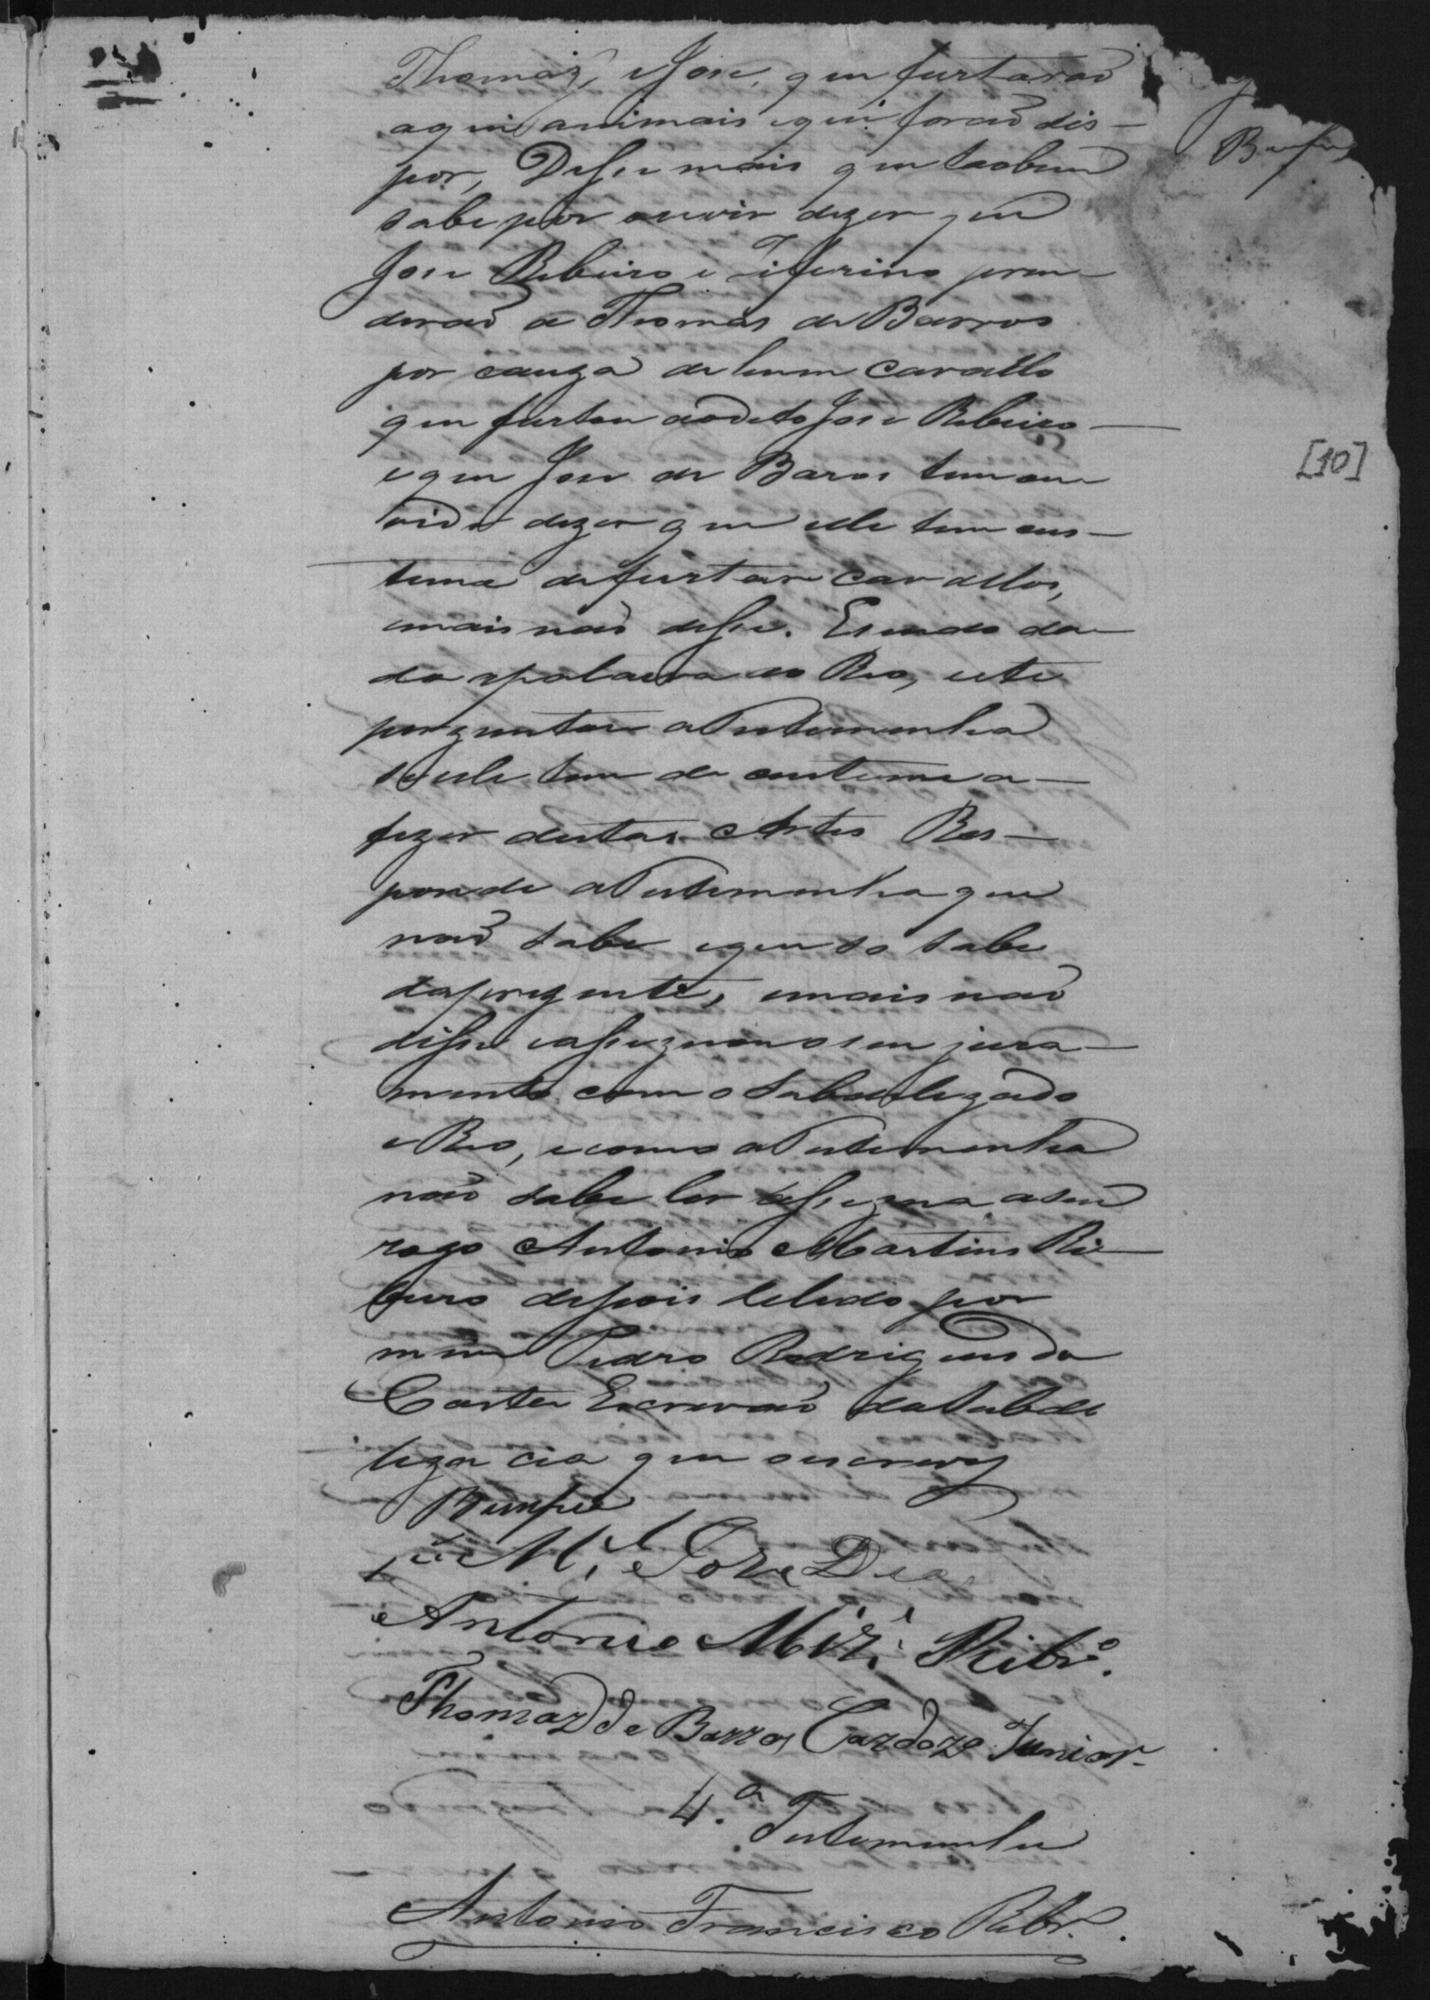 Thomaz, e Jose, que furtaraõ
aqui animais e que foraõ dis-
por, Disse mais que taobem
sabe por ouvir dizer que
Jose Ribeiro e Ziferino pren-
deraõ a Thomas de Barros
por cauza de hum Cavallo
que furtou ao dito Jose Ribeiro
e que Jose de Baros tem ou
vido dizer que elle tem cus-
tume de furtar cavallos,
emais naõ disse. E sendo da-
da a palavra ao Reo, este
perguntou a Testemunha
se elle tem de custume a-
fezer destas Artes Res-
ponde a Testemunha que
naõ sabe e que so sabe
da prezente, emais naõ
disse e assignou o seu jura-
mento com o Subdelegado
e Reo, e como a Testemunha
naõ sabe ler assigna a seu
rogo Antonio Martins Ri-
beiro depois de lido por
mim Pedro Rodrigues da
Costa Escrivaõ da Subde
legacia que o escrevy
Bompie
Mel Joze Dias
Antonio Miz. Ribro.
Thomaz de Barros Cardozo Junior
4.a Testemunha
Antonio Francisco Ribr.o
[10]